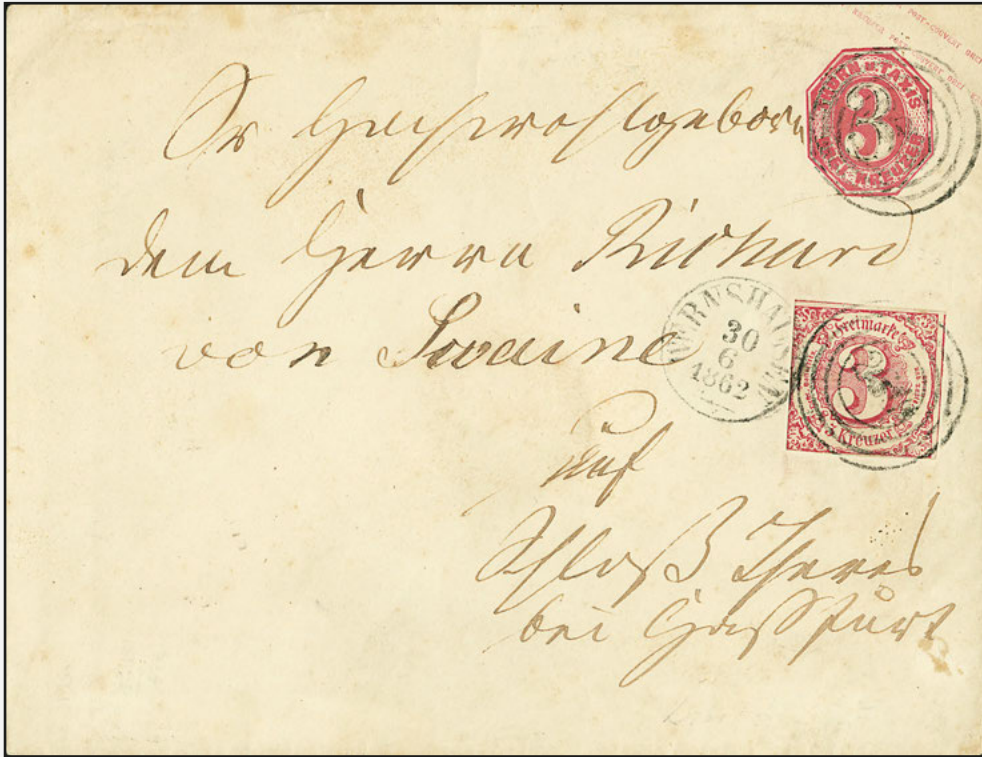 POST-COUVERT
THURN u. TAXIS
3
DREI KREUZER
Sr Hochwohlgeborn
dem Herrn Richard
von Swaine
WERNSHAUSEN
30
6
1862
Freimarke
3
3 Kreuzer
auf
Schloß Theres
bei Haßfurt